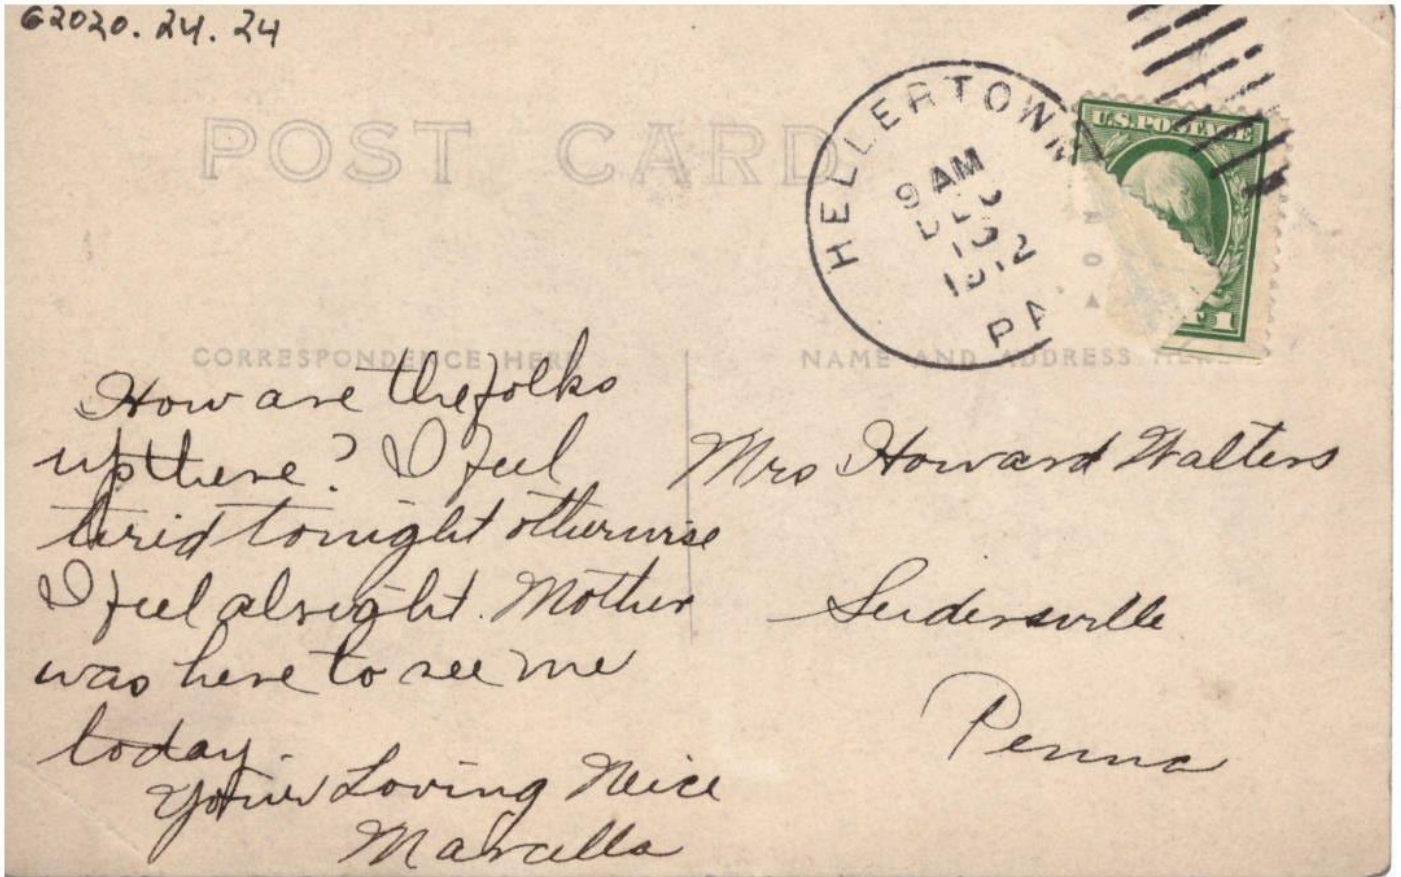 G2020.24.24
POST CARD
HELLERTOWN
9 AM
DEC
10
1912
PA
U.S.POSTAGE
1
CORRESPONDENCE HERE
NAME AND ADDRESS HERE
How are the folks
up there? I feel
tirid tonight otherwise
I feel alright. Mother
was here to see me
today.
Your Loving Neice
Marcella
Mrs Howard Walters
Seidersville
Penna